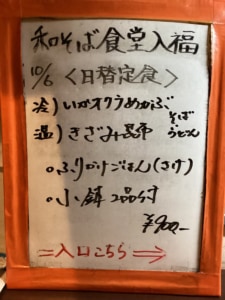 和そば食堂入福
10/6 〈日替定食〉
冷) いかオクラめかぶ そば
温) きざみ昆布 うどん
○ふりかけごはん(さけ)
○小鉢 2品付
¥900-
⇒入口こちら⇒